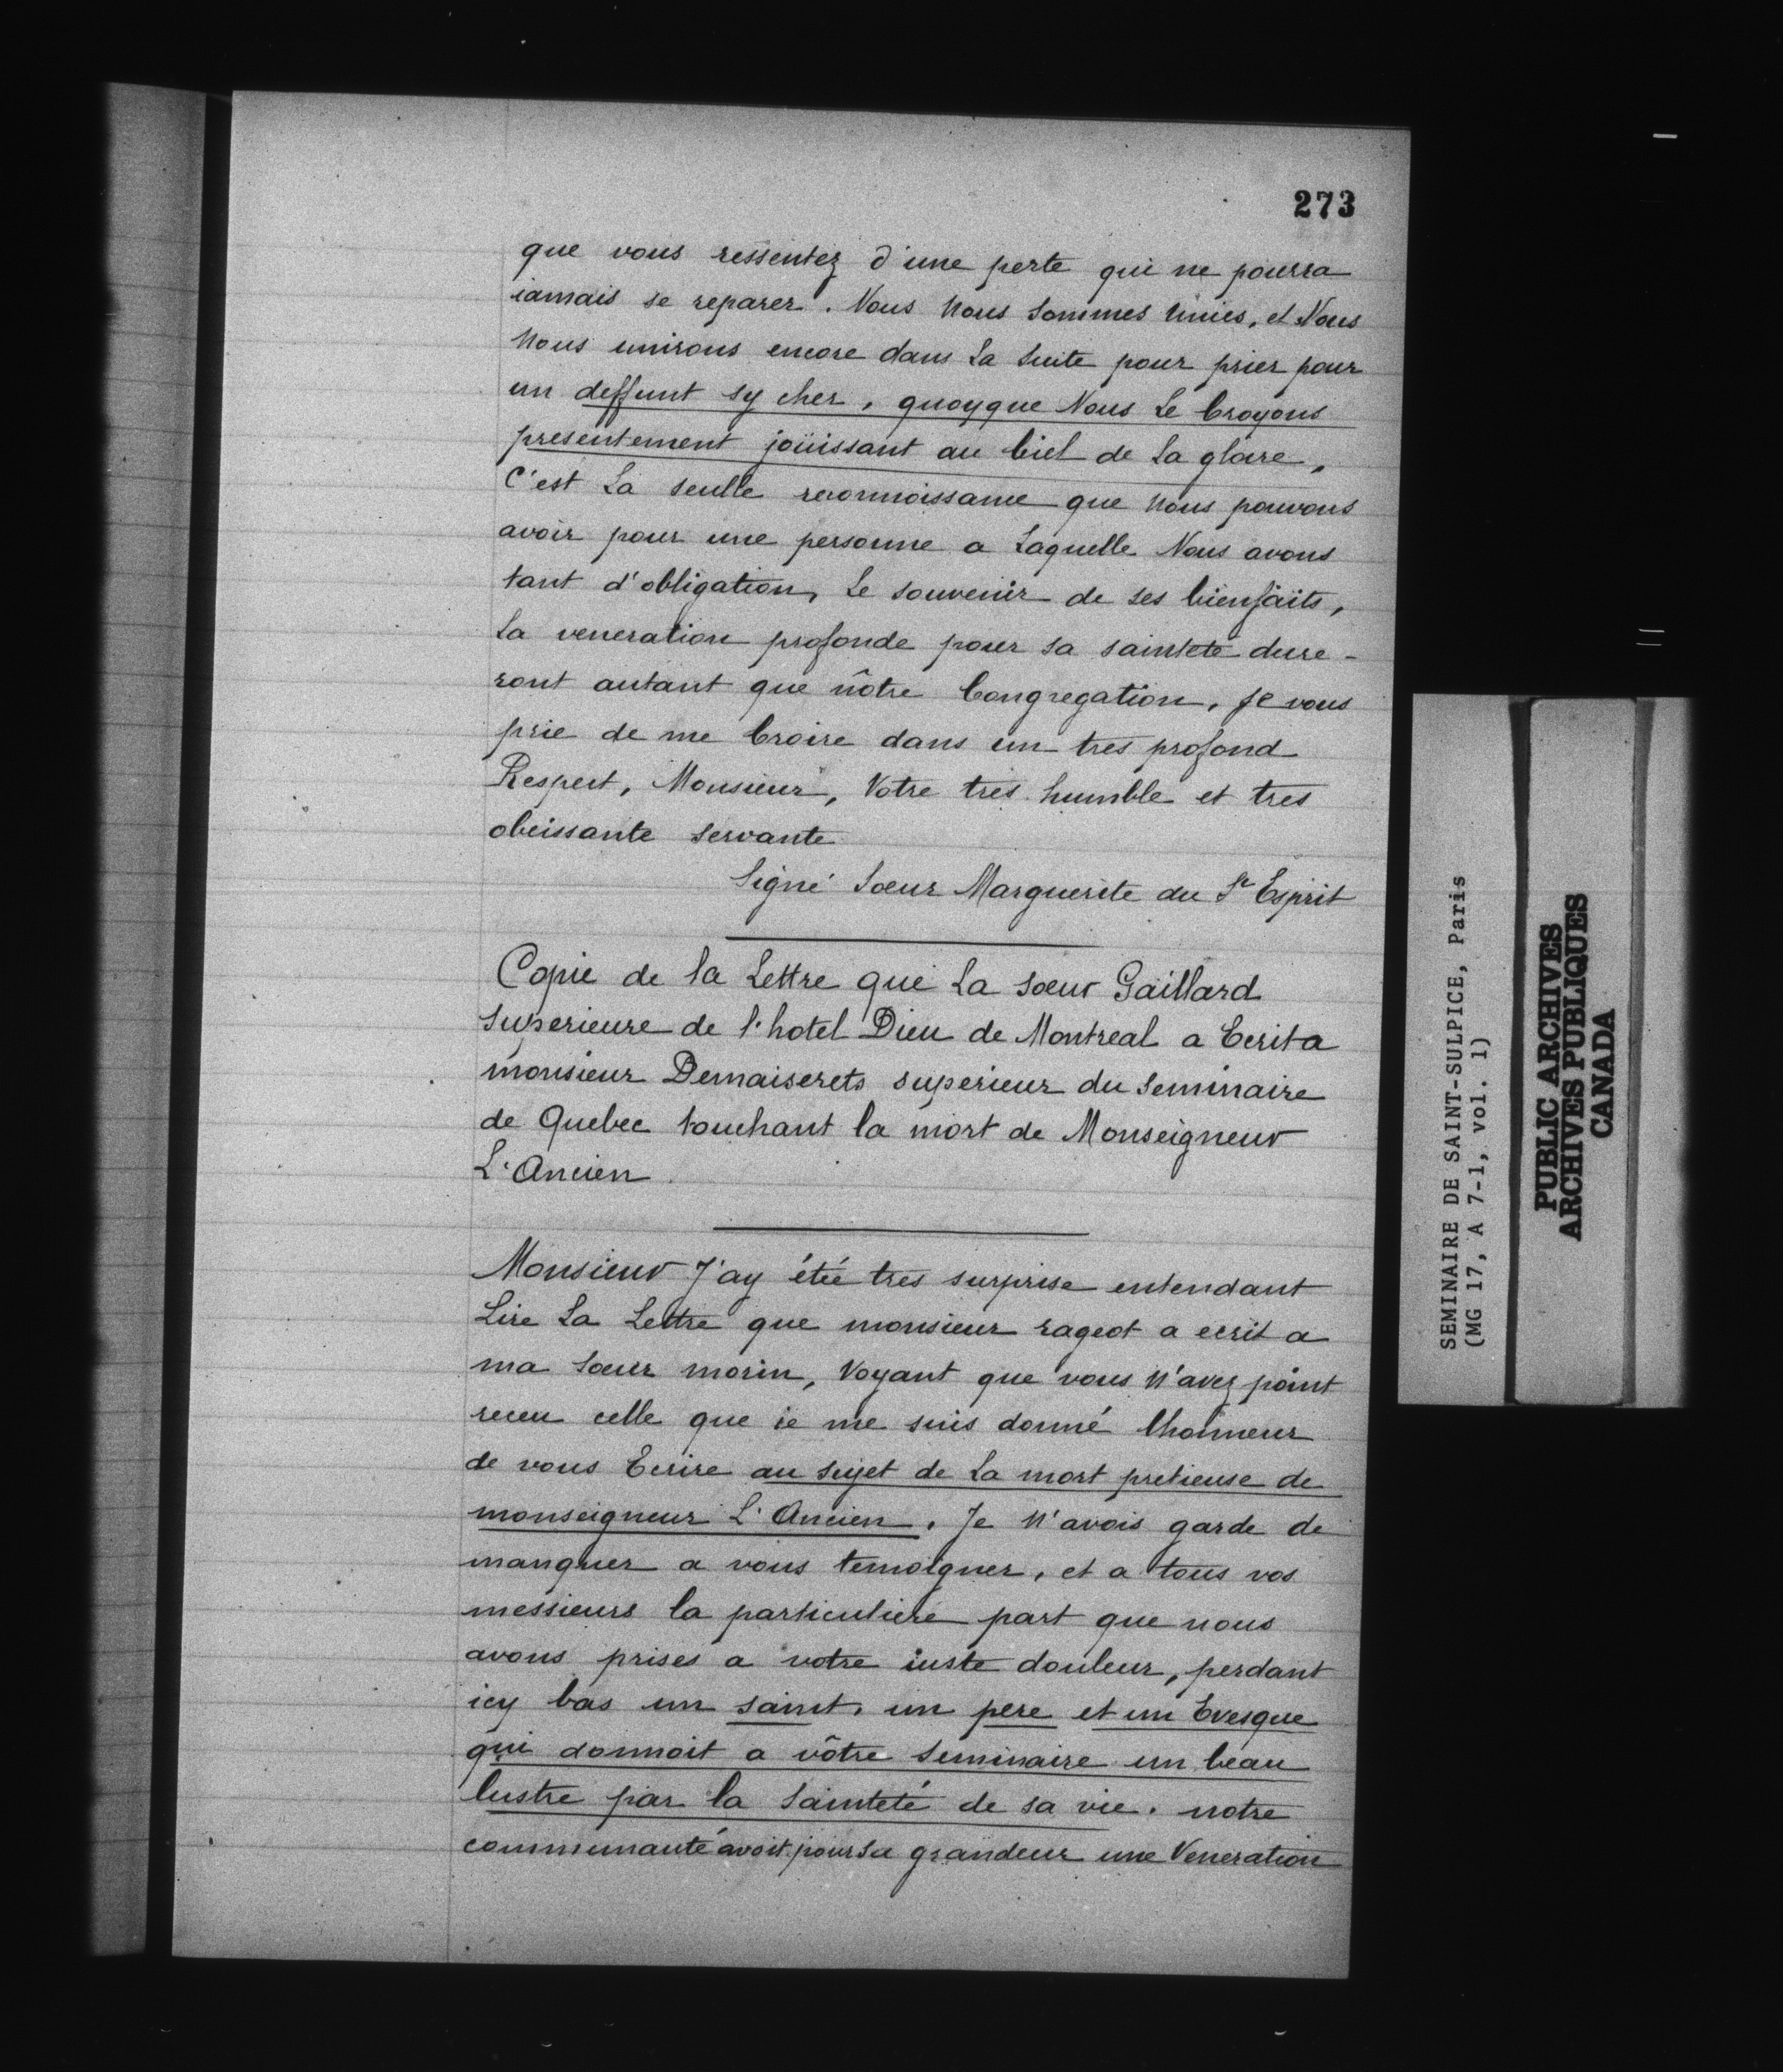 273
que vous ressentez d'une perte qui ne pourra
iamais se reparer. Nous Nous sommes Unies, et Nous
Nous unirons encore dans La suite pour prier pour
un deffunt sy cher, quoyque Nous Le Croyons
presentement joüissant au Ciel de La gloire,
C'est La seulle reconnoissance que Nous pouvons
avoir pour une personne a Laquelle Nous avons
tant d'obligation, Le souvenir de ses bienfaits,
La veneration profonde pour sa sainteté dure-
ront autant que nôtre Congregation, Je vous
prie de me Croire dans un tres profond
Respect, Monsieur, Votre tres humble et tres
obeissante servante
Signé Soeur Marguerite du St Esprit
Copie de la Lettre que La soeur Gaillard
superieure de l'hotel Dieu de Montreal a Ecrit a
monsieur Demaiserets superieur du Seminaire
de Quebec touchant la mort de Monseigneur
L'Ancien
Monsieur J'ay étée tres surprise entendant
Lire La Lettre que monsieur rageot a ecrit a
ma soeur morin, Voyant que vous N'avez point
receu celle que ie me suis donné lhonneur
de vous Ecrire au sujet de La mort pretieuse de
monseigneur L'Ancien, Je N'avois garde de
manquer a vous temoigner, et a tous vos
messieurs la particuliere part que nous
avons prises a votre iuste douleur, perdant
icy bas un saint, un pere et un Evesque
qui donnoit a vôtre seminaire un beau
lustre par la Sainteté de sa vie. notre
communauté avoit pour sa grandeur une Veneration
SEMINAIRE DE SAINT-SULPICE, Paris
(MG 17, A 7-1, vol. 1)
PUBLIC ARCHIVES
ARCHIVES PUBLIQUES
CANADA